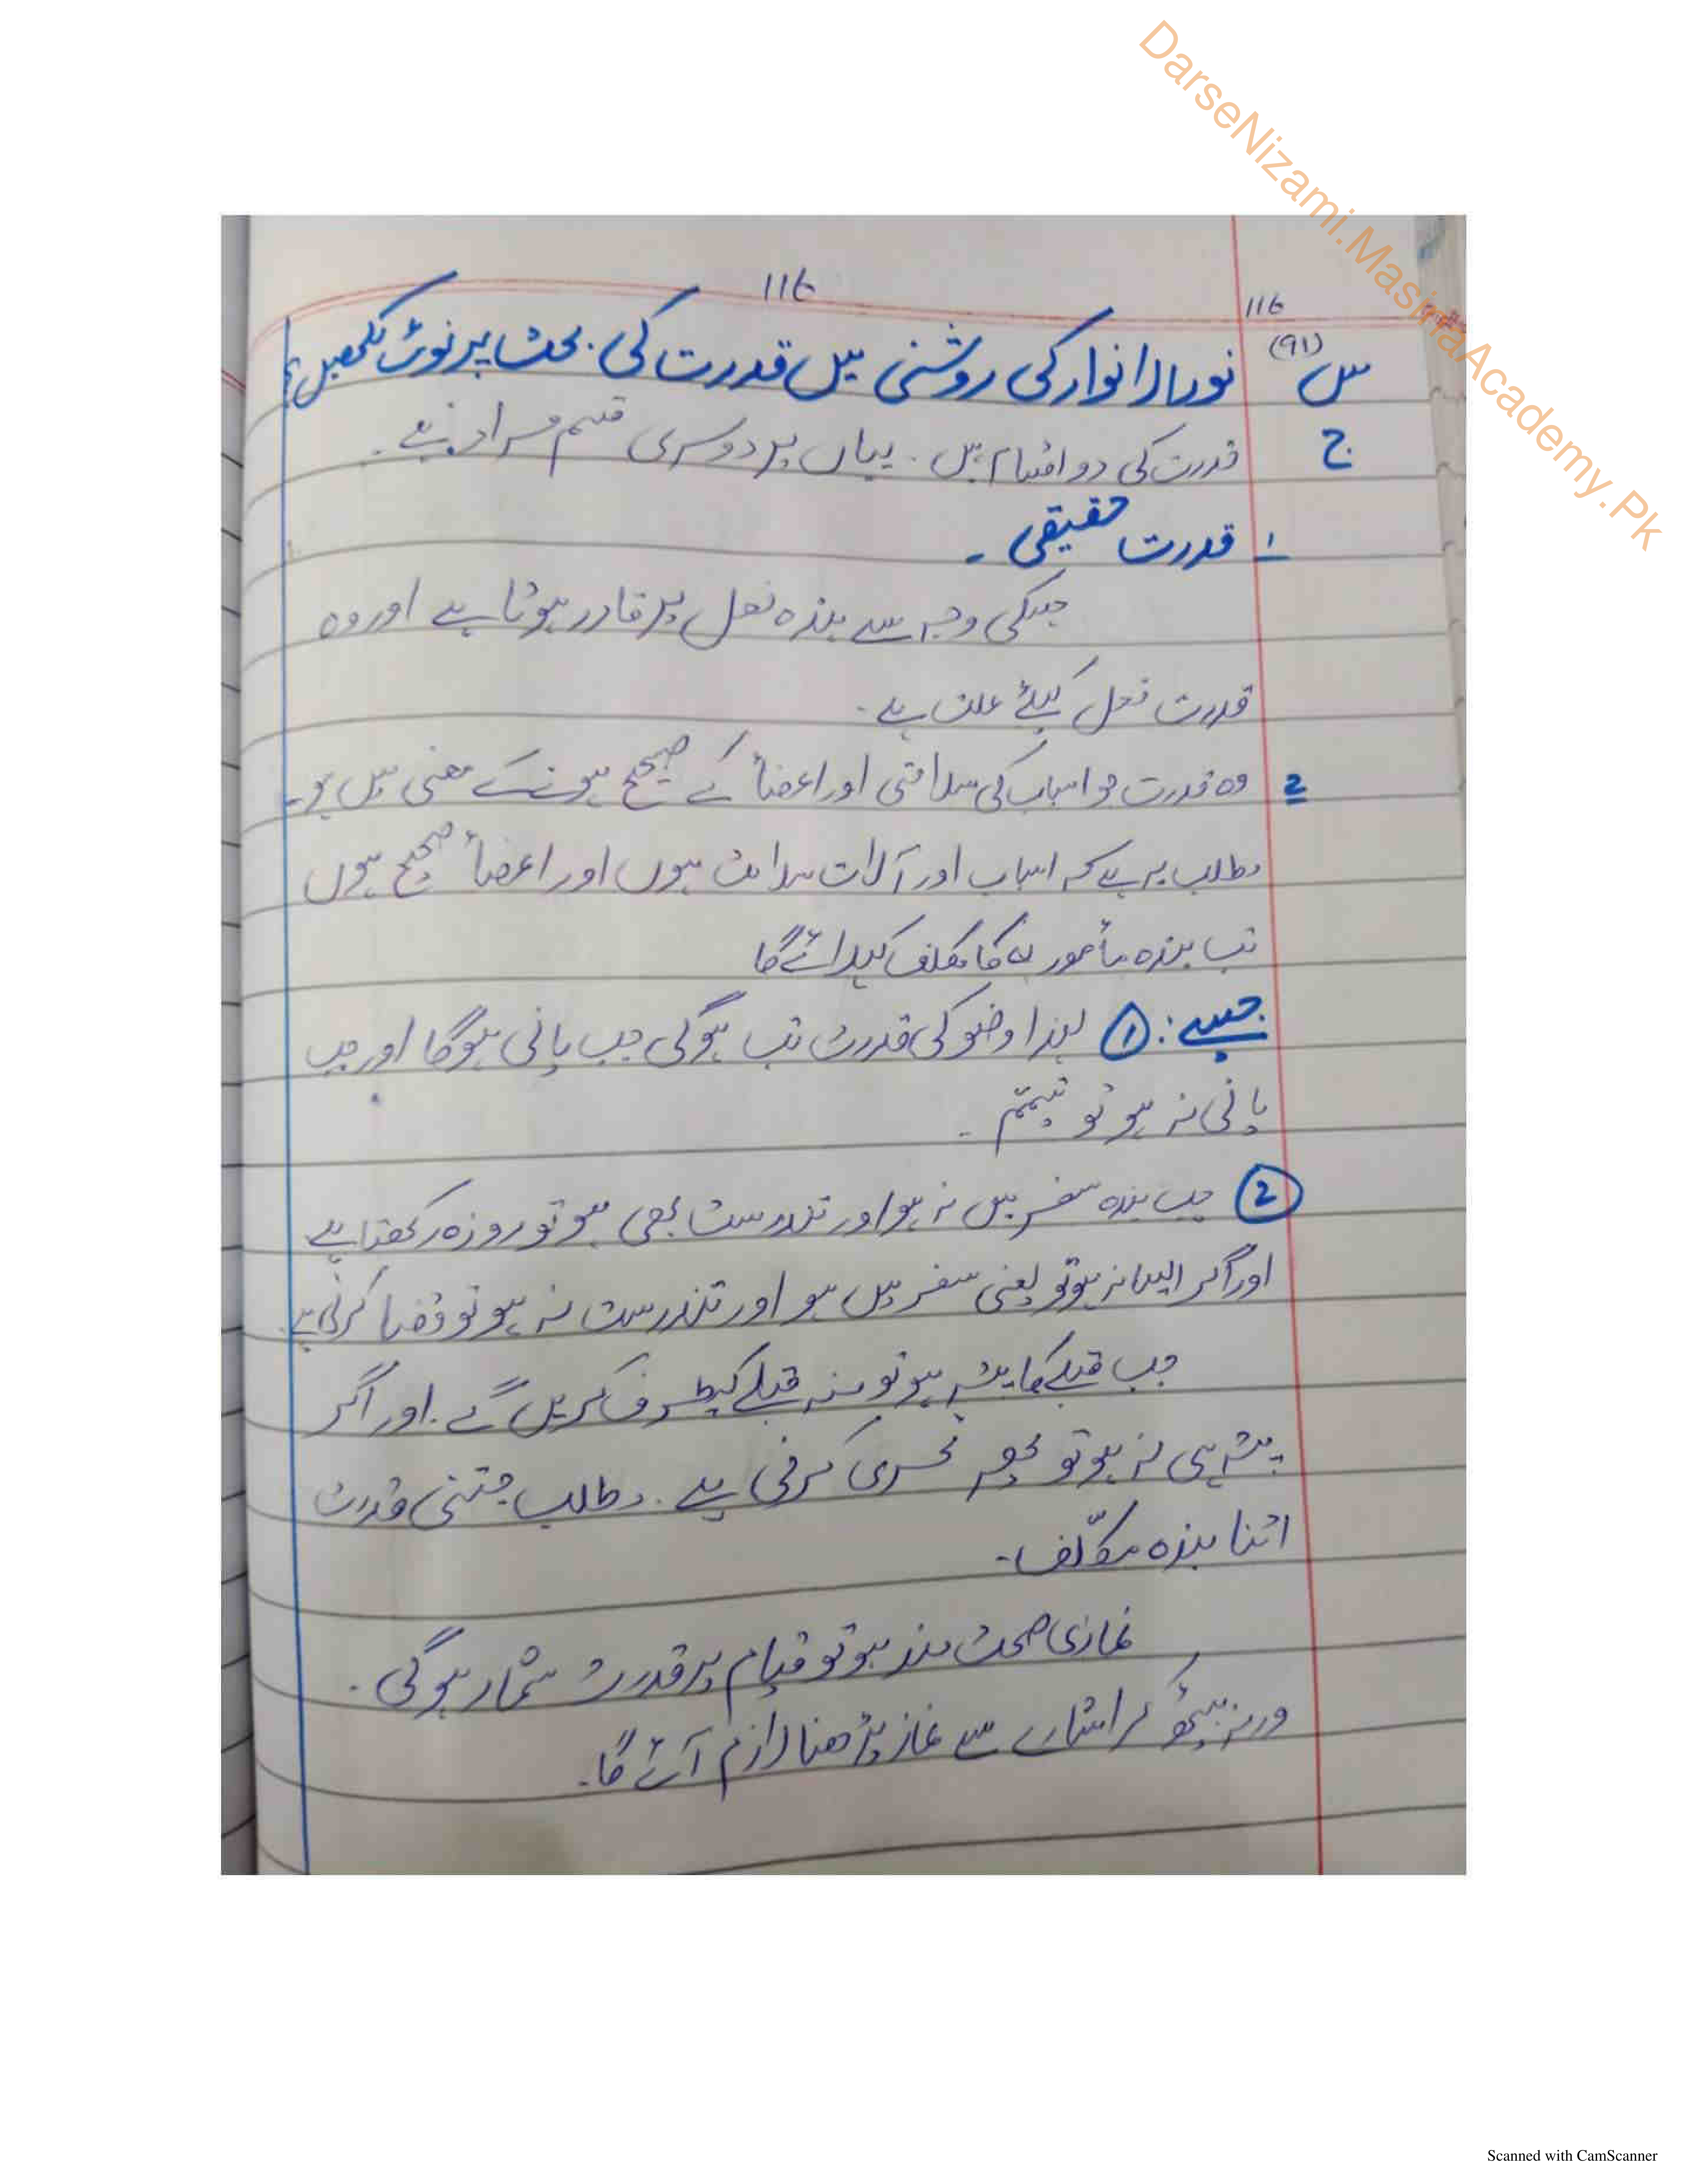 DarseNizami.MasihaAcademy.Pk
116
116
س (91) نورالانوار کی روشنی میں قدرت کی بحث پر نوٹ لکھیں؟
ج قدرت کی دو اقسام ہیں۔ یہاں پر دوسری قسم مراد ہے۔
1 قدرت حقیقی۔
جسکی وجہ سے بندہ فعل پر قادر ہوتا ہے اور وہ
قدرت فعل کیلئے علت ہے۔
2 وہ قدرت جو اسباب کی سلامتی اور اعضأ کے صحیح ہونے کے معنی میں ہو۔
مطلب یہ ہے کہ اسباب اور آلات سلامت ہوں اور اعضأ صحیح ہوں
تب بندہ مأمور بہ کا مکلف کہلائے گا
جیسے: 1 لہذا وضو کی قدرت تب ہوگی جب پانی ہوگا اور جب
پانی نہ ہو تو تیمّم۔
2 جب بندہ سفر میں نہ ہو اور تندرست بھی ہو تو روزہ رکھنا ہے
اور اگر ایسا نہ ہو تو یعنی سفر میں ہو اور تندرست نہ ہو تو قضا کرنی ہے۔
جب قبلے کا پتہ ہو تو منہ قبلے کیطرف کریں گے۔ اور اگر
پتہ ہی نہ ہو تو پھر تحری کرنی ہے۔ مطلب جتنی قدرت
اتنا بندہ مکلّف۔
نمازی صحت مند ہو تو قیام پر قدرت شمار ہوگی۔
ورنہ بیٹھ کر اشارے سے نماز پڑھنا لازم آئے گا۔
Scanned with CamScanner